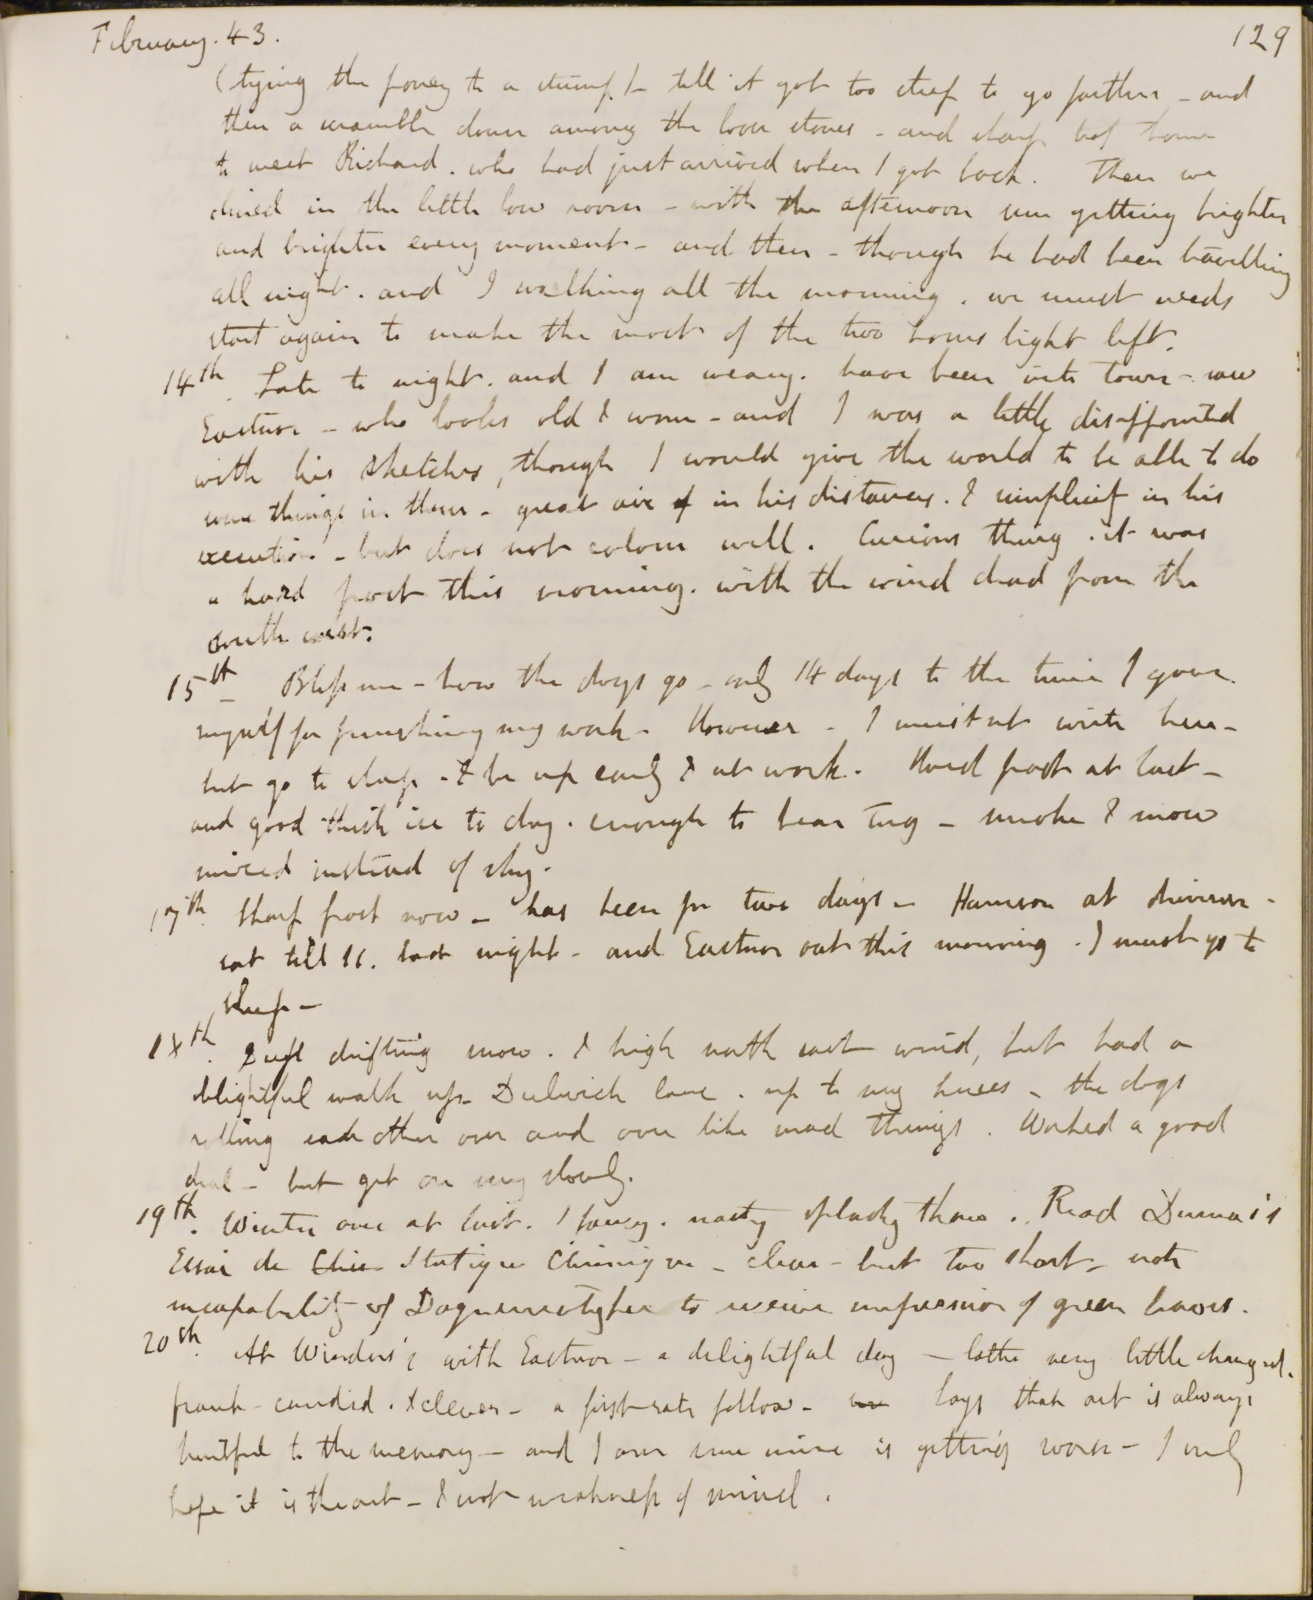 February. 43.
129
(tying the poney to a stump.) - till it got too steep to go farther - and
then a scramble down among the loose stones - and sharp trot home
to meet Richard. who had just arrived when I got back. Then we
dined in the little low room - with the afternoon sun getting brighter
and brighter every moment - and then - though he had been travelling
all night. and I walking all the morning. we must needs
start again to make the most of the two hours light left.
14th. Late to night. and I am weary. have been into town - saw
Eastnor - who looks old & worn - and I was a little disappointed
with his sketches, though I would give the world to be able to do
some things in them - great air in his distances. & simplicity in his
execution - but does not colour well. Curious thing. it was
a hard frost this morning. with the wind dead from the
south west.
15th Bless me - how the days go - only 14 days to the time I gave
myself for finishing my work. However - I must not write here -
but go to sleep - & be up early & at work. Hard frost at last -
and good thick ice to day. enough to bear Tug - smoke & snow
mixed instead of sky.
17th. Sharp frost now - has been for two days - Harrison at dinner -
sat till 11. last night - and Eastnor out this morning. I must go to
sleep -
18th. drifting snow. & high north east wind, but had a
delightful walk up Dulwich lane. up to my knees - the dogs
rolling each other over and over like mad things. Worked a good
deal - but get on very slowly.
19th. Winter over at last. I fancy. nasty splashy thaw. Read Dumas's
Essai de Chim Statique Chimique - clear - but too short - note
incapability of Daguerreotype to receive impression of green leaves.
20th. At with Eastnor - a delightful day - latter very little changed.
frank - candid. & clever - a first rate fellow - says that art is always
hurtful to the memory - and I am sure mine is getting worse - I only
hope it is the art - & not weakness of mind.